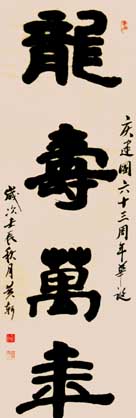 龍壽萬年
庆建國六十三周年華诞
歲次壬辰秋月